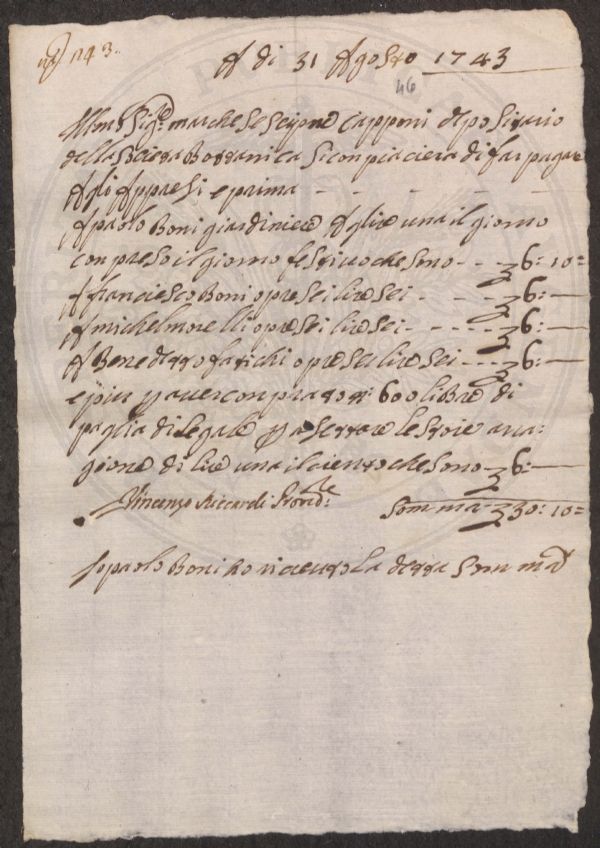 1743.
A di 31 Agosto 1743
46
Illmo Sigre marchese scipione Capponi depositario
della Societa Bottanica Si conpiaciera di far pagare
Agli Appresi e prima
A paolo Boni giardiniere A lire una il giorno
conpreso il giorno festiuo che sono 6: 10=
A franciesco Boni opre sei lire sei 6:
A michel morelli opre sei lire sei 6:
A Benedetto farichi opre sei lire sei 6:
e piu p auer conprato 600 libre di
paglia di segale p a Serrare le stoie a ra=
gione di lire una il ciento che sono 6:
Vincenzo Riccardi Provdre Somma 30: 10=
Io paolo Boni ho riceuuto La detta Somma